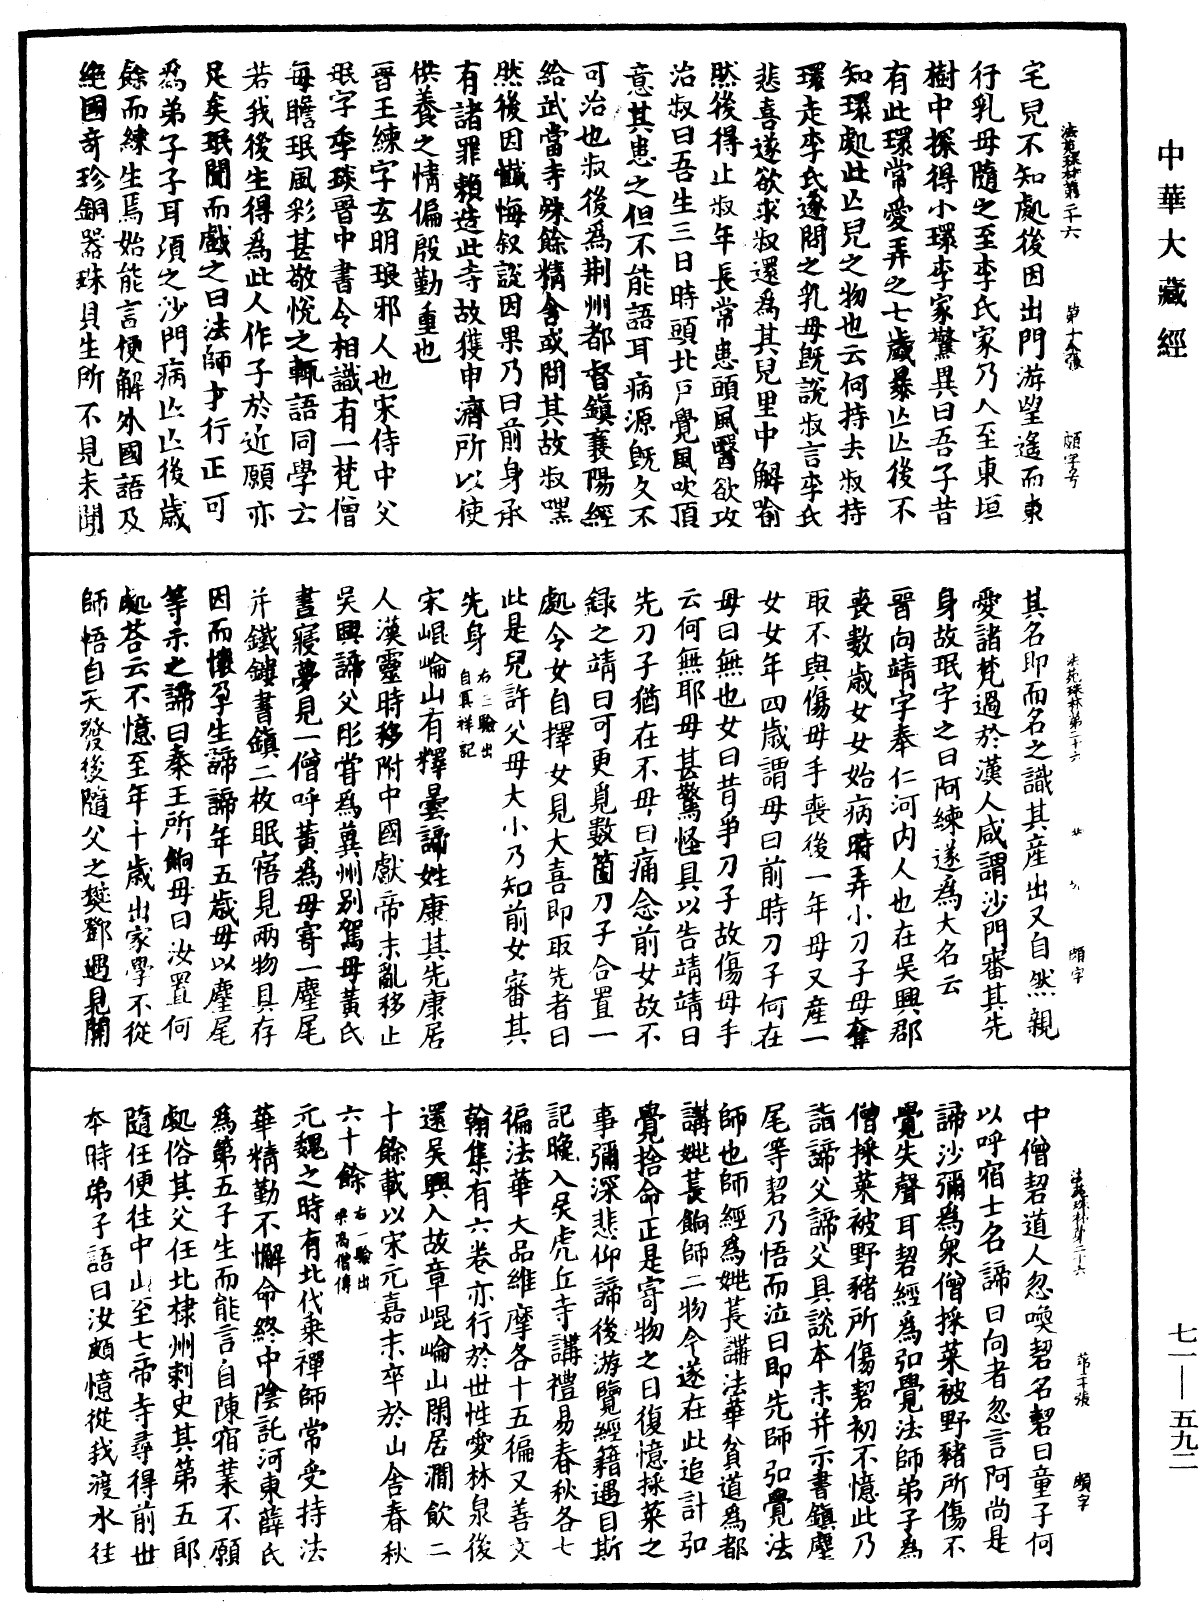 中華大藏經
法苑珠林第二十六 第十八張 頗字号
宅兒不知處後因出門游望遙而東
行乳母隨之至李氏家乃入至東垣
樹中探得小環李家驚異曰吾子昔
有此環常愛弄之七歲暴亡亡後不
知環處此亡兒之物也云何持去叔持
環走李氏遂問之乳母旣說叔言李氏
悲喜遂欲求叔還爲其兒里中解喻
然後得止叔年長常患頭風醫欲攻
治叔曰吾生三日時頭北戶覺風吹頂
意其患之但不能語耳病源旣久不
可治也叔後爲荆州都督鎮襄陽經
給武當寺殊餘精舍或問其故叔嘿
然後因懺悔叙說因果乃曰前身承
有諸罪賴造此寺故獲申濟所以使
供養之情偏殷勤重也
晉王練字玄明琅邪人也宋侍中父
珉字季琰晉中書令相識有一梵僧
每瞻珉風彩甚敬悅之輒語同學云
若我後生得爲此人作子於近願亦
足矣珉聞而戲之曰法師才行正可
爲弟子子耳頃之沙門病亡亡後歲
餘而練生焉始能言便解外國語及
絶國奇珍銅器珠貝生所不見未聞
法苑珠林第二十六 頗字
其名即而名之識其産出又自然親
愛諸梵過於漢人咸謂沙門審其先
身故珉字之曰阿練遂爲大名云
晉向靖字奉仁河内人也在吳興郡
喪數歲女女始病時弄小刀子母奪
取不與傷母手喪後一年母又産一
女女年四歲謂母曰前時刀子何在
母曰無也女曰昔爭刀子故傷母手
云何無耶母甚驚怪具以告靖靖曰
先刀子猶在不母曰痛念前女故不
録之靖曰可更覓數箇刀子合置一
處令女自擇女見大喜即取先者曰
此是兒許父母大小乃知前女審其
先身 右二驗出自冥祥記
宋崐崘山有釋曇諦姓康其先康居
人漢靈時移附中國獻帝末亂移止
吳興諦父肜嘗爲冀州别駕母黃氏
晝寢夢見一僧呼黃爲母寄一麈尾
并鐵鏤書鎮二枚眠寤見兩物具存
因而懷孕生諦諦年五歲母以麈尾
等示之諦曰秦王所餉母曰汝置何
處荅云不憶至年十歲出家學不從
師悟自天發後隨父之樊鄧遇見關
法苑珠林第二十六 第二十張 頗字
中僧䂮道人忽喚䂮名䂮曰童子何
以呼宿士名諦曰向者忽言阿尚是
諦沙彌爲衆僧採菜被野豬所傷不
覺失聲耳䂮經爲弘覺法師弟子爲
僧採菜被野豬所傷䂮初不憶此乃
詣諦父諦父具說本末并示書鎮麈
尾等䂮乃悟而泣曰即先師弘覺法
師也師經爲姚萇講法華貧道爲都
講姚萇餉師二物今遂在此追計弘
覺捨命正是寄物之日復憶採菜之
事彌深悲仰諦後游覽經籍遇目斯
記晚入吳虎丘寺講禮易春秋各七
徧法華大品維摩各十五徧又善文
翰集有六卷亦行於世性愛林泉後
還吳興入故章崐崘山閑居澗飲二
十餘載以宋元嘉末卒於山舍春秋
六十餘 右一驗出梁高僧傳
元魏之時有北代乗禪師常受持法
華精勤不懈命終中陰託河東薛氏
爲第五子生而能言自陳宿業不願
處俗其父任北棣州刺史其第五郎
隨任便往中山至七帝寺尋得前世
本時弟子語曰汝頗憶從我渡水往
七一—五九二